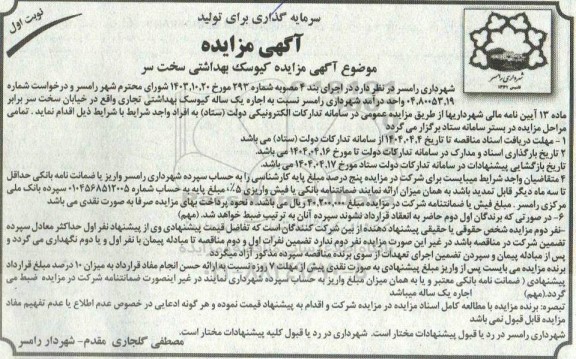 سرمایه گذاری برای تولید
نوبت اول
آگهی مزایده
موضوع آگهی مزایده کیوسک بهداشتی سخت سر
شهرداری رامسر
شهرداری رامسر در نظر دارد در اجرای بند ۴ مصوبه شماره ۲۹۳ مورخ ۱۴۰۳.۱۰.۲۰ شورای محترم شهر رامسر و درخواست شماره
۰۴.۸۰۰۵۳.۱۹ واحد درآمد شهرداری رامسر نسبت به اجاره یک ساله کیوسک بهداشتی تجاری واقع در خیابان سخت سر برابر
ماده ۱۳ آیین نامه مالی شهرداریها از طریق مزایده عمومی در سامانه تدارکات الکترونیکی دولت (ستاد) به افراد واجد شرایط با شرایط ذیل اقدام نماید . تمامی
مراحل مزایده در بستر سامانه ستاد برگزار می گردد
۱ - مهلت دریافت اسناد مناقصه تا تاریخ ۱۴۰۴.۰۴.۴ از سامانه تدارکات دولت (ستاد) می باشد
۲ تاریخ بارگذاری اسناد و مدارک در سامانه تدارکات دولت تا مورخ ۱۴۰۴.۰۴.۱۶ می باشد.
تاریخ بازگشایی پیشنهادات در سامانه تدارکات دولت ستاد مورخ ۱۴۰۴.۰۴.۱۷ می باشد.
۴ متقاضیان واجد شرایط میبایست برای شرکت در مزایده پنج درصد مبلغ پایه کارشناسی را به حساب سپرده شهرداری رامسر واریز یا ضمانت نامه بانکی حداقل
تا سه ماه دیگر قابل تمدید باشد به همان میزان ارائه نمایند ضمانتنامه بانکی یا فیش واریزی ۵٪ مبلغ پایه به حساب شماره ۰۱۰۴۵۶۸۵۱۲۰۰۵ سپرده بانک ملی
مرکزی رامسر . مبلغ فیش یا ضمانتنامه شرکت در مزایده مبلغ ۴۰.۲۰۰.۰۰۰ ریال می باشد ه نحوه پرداخت بهای مزایده صرفا به صورت نقدی می باشد
۶- در صورتی که برندگان اول دوم حاضر به انعقاد قرارداد نشوند سپرده آنان به ترتیب ضبط خواهد شد. (مهم)
-نفر دوم مزایده شخص حقوقی یا حقیقی پیشنهاد دهنده از بین شرکت کنندگان است که تفاضل قیمت پیشنهادی وی از پیشنهاد نفر اول حداکثر معادل سپرده
تضمین شرکت در مناقصه باشد در غیر این صورت مزایده نفر دوم ندارد تضمین نفرات اول و دوم مناقصه تا مبادله پیمان با نفر اول و یا دوم نگهداری می گردد و
پس از مبادله پیمان و سپردن تضمین اجرای تعهدات از سوی برنده مناقصه سپرده مذکور آزاد میگردد.
برنده مزایده می بایست پس از واریز مبلغ پیشنهادی به صورت نقدی پیش از مهلت ۷ روزه نسبت به ارائه حسن انجام مفاد قرارداد به میزان ۱۰ درصد مبلغ قرارداد
پیشنهادی ( ضمانت نامه بانکی معتبر و یا به همان میزان مبلغ واریز به حساب سپرده شهرداری نمایند در غیر اینصورت ضمانتنامه شرکت در مزایده ضبط می
گردد.(مهم) اجاره یک ساله میباشد
تبصره: برنده مزایده با مطالعه کامل اسناد مزایده در مزایده شرکت و اقدام به پیشنهاد قیمت نموده و هر گونه ادعایی در خصوص عدم اطلاع یا عدم تفهیم مفاد
مزایده قابل قبول نمی باشد
شهرداری رامسر در رد یا قبول پیشنهادات مختار است. شهرداری در رد یا قبول کلیه پیشنهادات مختار است.
مصطفی گلجاری مقدم- شهردار رامسر